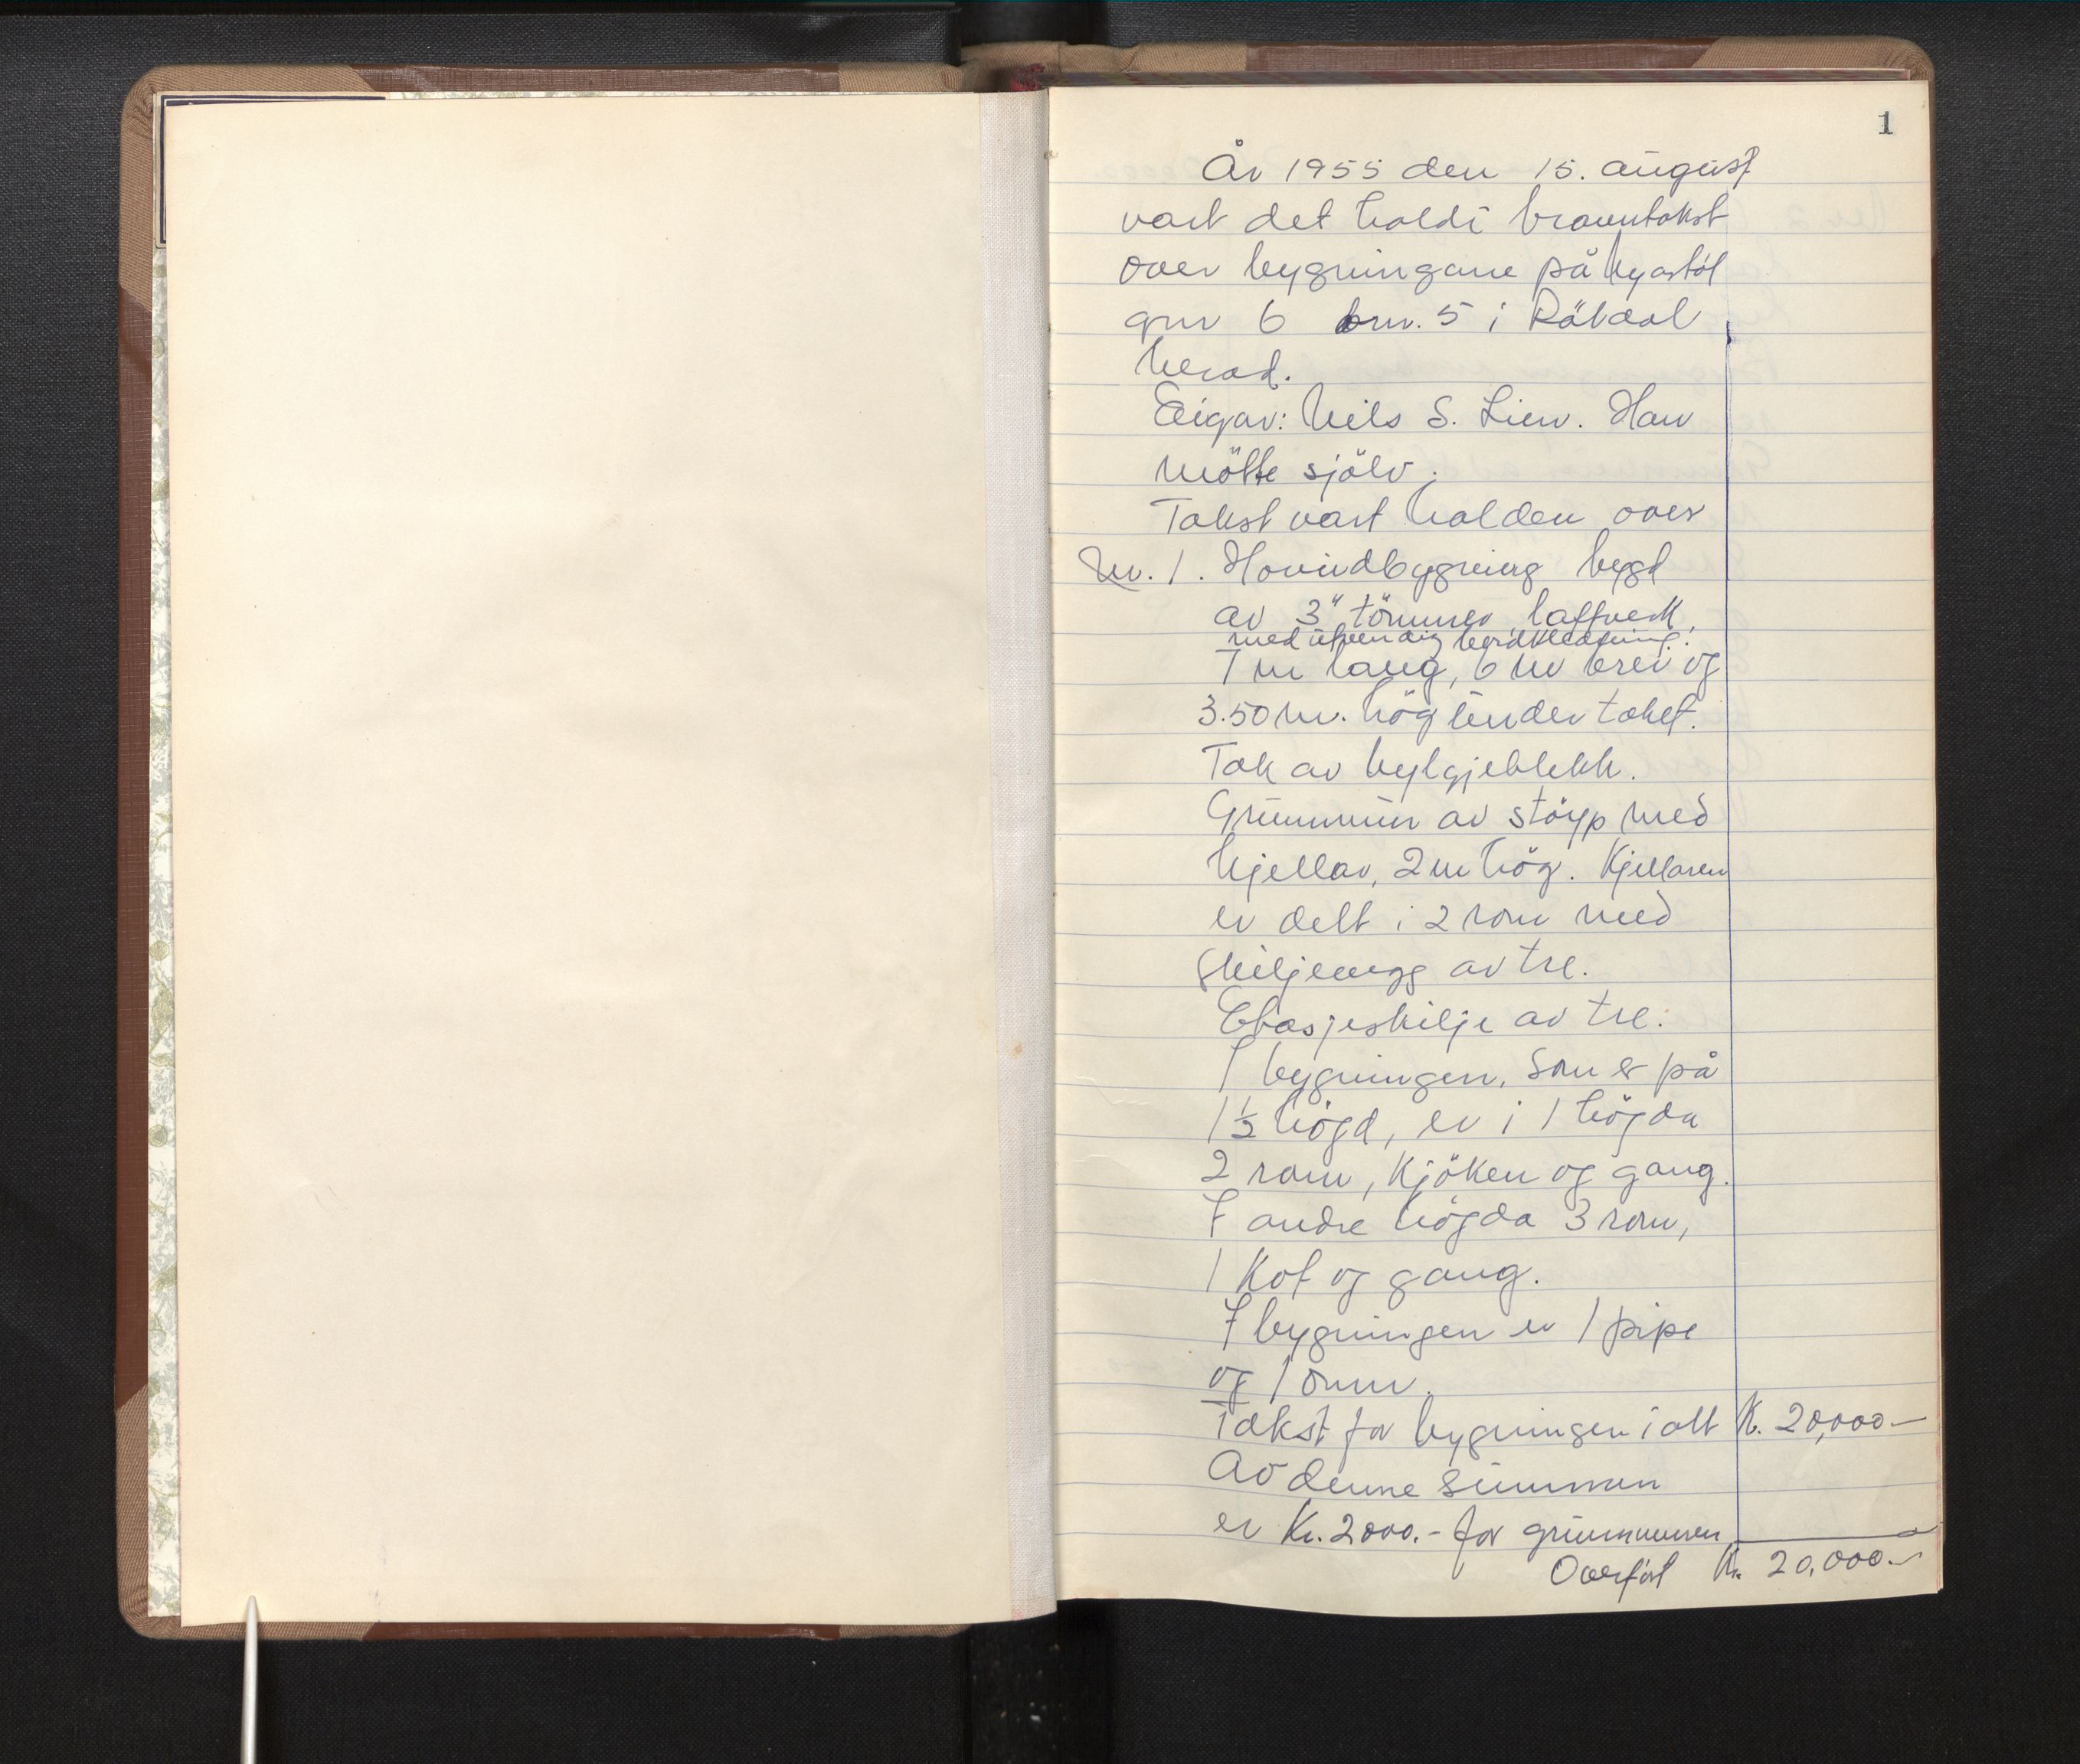 1
År 1955 den 15. august
vart det haldi branntakst
over bygningane på Nyastøl
gnr 6 bnr. 5 i Röldal
herad.
Eigar: Nils S. Lien. Han
mötte sjölv.
Takst vart halden over
Nr. 1. Hovudbygning bygd
av 3" tömmer laftverk,
med utvendig bordkledning.
7 m lang, 6 m brei og
3.50 m. hög under taket.
Tak av bylgjeblekk.
Grunnmur av stöyp med
kjellar, 2 m hög. Kjellaren
er delt i 2 rom med
skiljevegg av tre.
Etasjeskilje av tre.
I bygningen, som er på
1 1/2 högd, er i 1 högda
2 rom, kjöken og gang.
I andre högda 3 rom,
1 kot og gang.
I bygningen er 1 pipe
og 1 omn.
Takst for bygningen i alt K. 20,000-
Av denne summen
er Kr. 2000.- for grunnmuren
Overfört Kr. 20,000.-